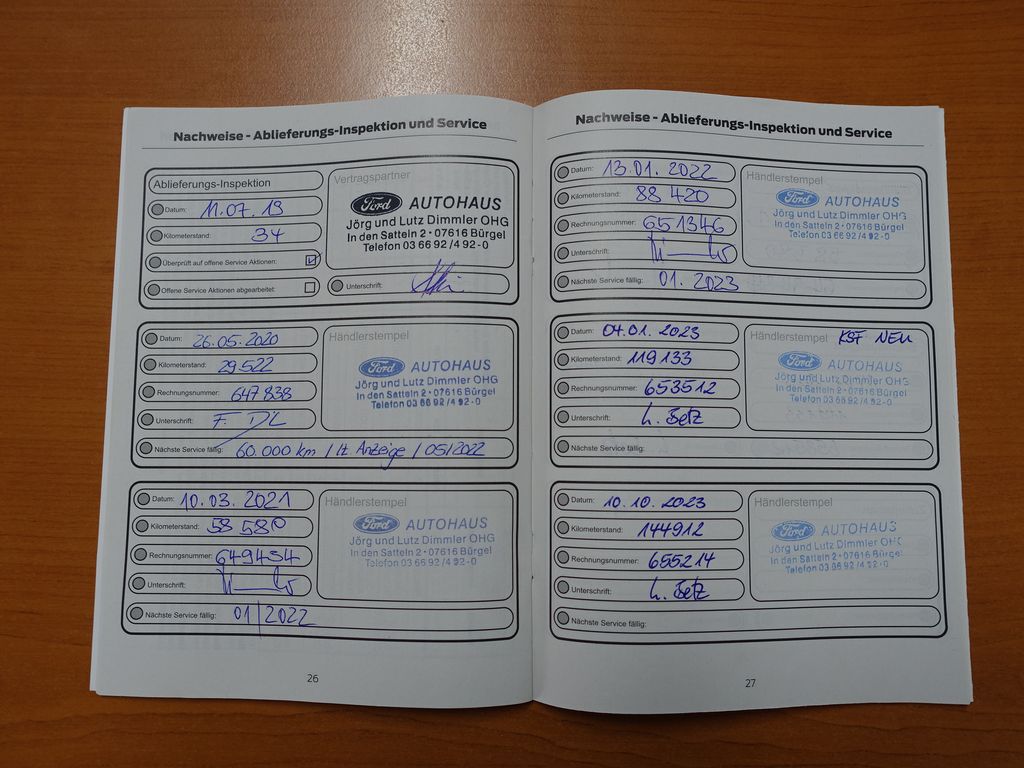 Nachweise - Ablieferungs-Inspektion und Service
Ablieferungs-Inspektion
Datum: 11.07.19
Kilometerstand: 34
Überprüft auf offene Service Aktionen:
Offene Service Aktionen abgearbeitet:
Vertragspartner
Ford AUTOHAUS
Jörg und Lutz Dimmler OHG
In den Satteln 2 · 07616 Bürgel
Telefon 03 66 92 / 4 92 - 0
Unterschrift:
Datum: 26.05.2020
Kilometerstand: 29522
Rechnungsnummer: 647838
Unterschrift:
Nächste Service fällig: 60.000 km / lt. Anzeige / 05/2022
Händlerstempel
Ford AUTOHAUS
Jörg und Lutz Dimmler OHG
In den Satteln 2 · 07616 Bürgel
Telefon 03 66 92 / 4 92 - 0
Datum: 10.03.2021
Kilometerstand: 58 580
Rechnungsnummer: 649434
Unterschrift:
Nächste Service fällig: 01/2022
Händlerstempel
Ford AUTOHAUS
Jörg und Lutz Dimmler OHG
In den Satteln 2 · 07616 Bürgel
Telefon 03 66 92 / 4 92 - 0
26
Nachweise - Ablieferungs-Inspektion und Service
Datum: 13.01.2022
Kilometerstand: 88 420
Rechnungsnummer: 651346
Unterschrift:
Nächste Service fällig: 01.2023
Händlerstempel
Ford AUTOHAUS
Jörg und Lutz Dimmler OHG
In den Satteln 2 · 07616 Bürgel
Telefon 03 66 92 / 4 92 - 0
Datum: 04.01.2023
Kilometerstand: 119133
Rechnungsnummer: 653512
Unterschrift: L. Betz
Nächste Service fällig:
Händlerstempel KSF NEU
Ford AUTOHAUS
Jörg und Lutz Dimmler OHG
In den Satteln 2 · 07616 Bürgel
Telefon 03 66 92 / 4 92 - 0
Datum: 10.10.2023
Kilometerstand: 144912
Rechnungsnummer: 655214
Unterschrift: L. Betz
Nächste Service fällig:
Händlerstempel
Ford AUTOHAUS
Jörg und Lutz Dimmler OHG
In den Satteln 2 · 07616 Bürgel
Telefon 03 66 92 / 4 92 - 0
27